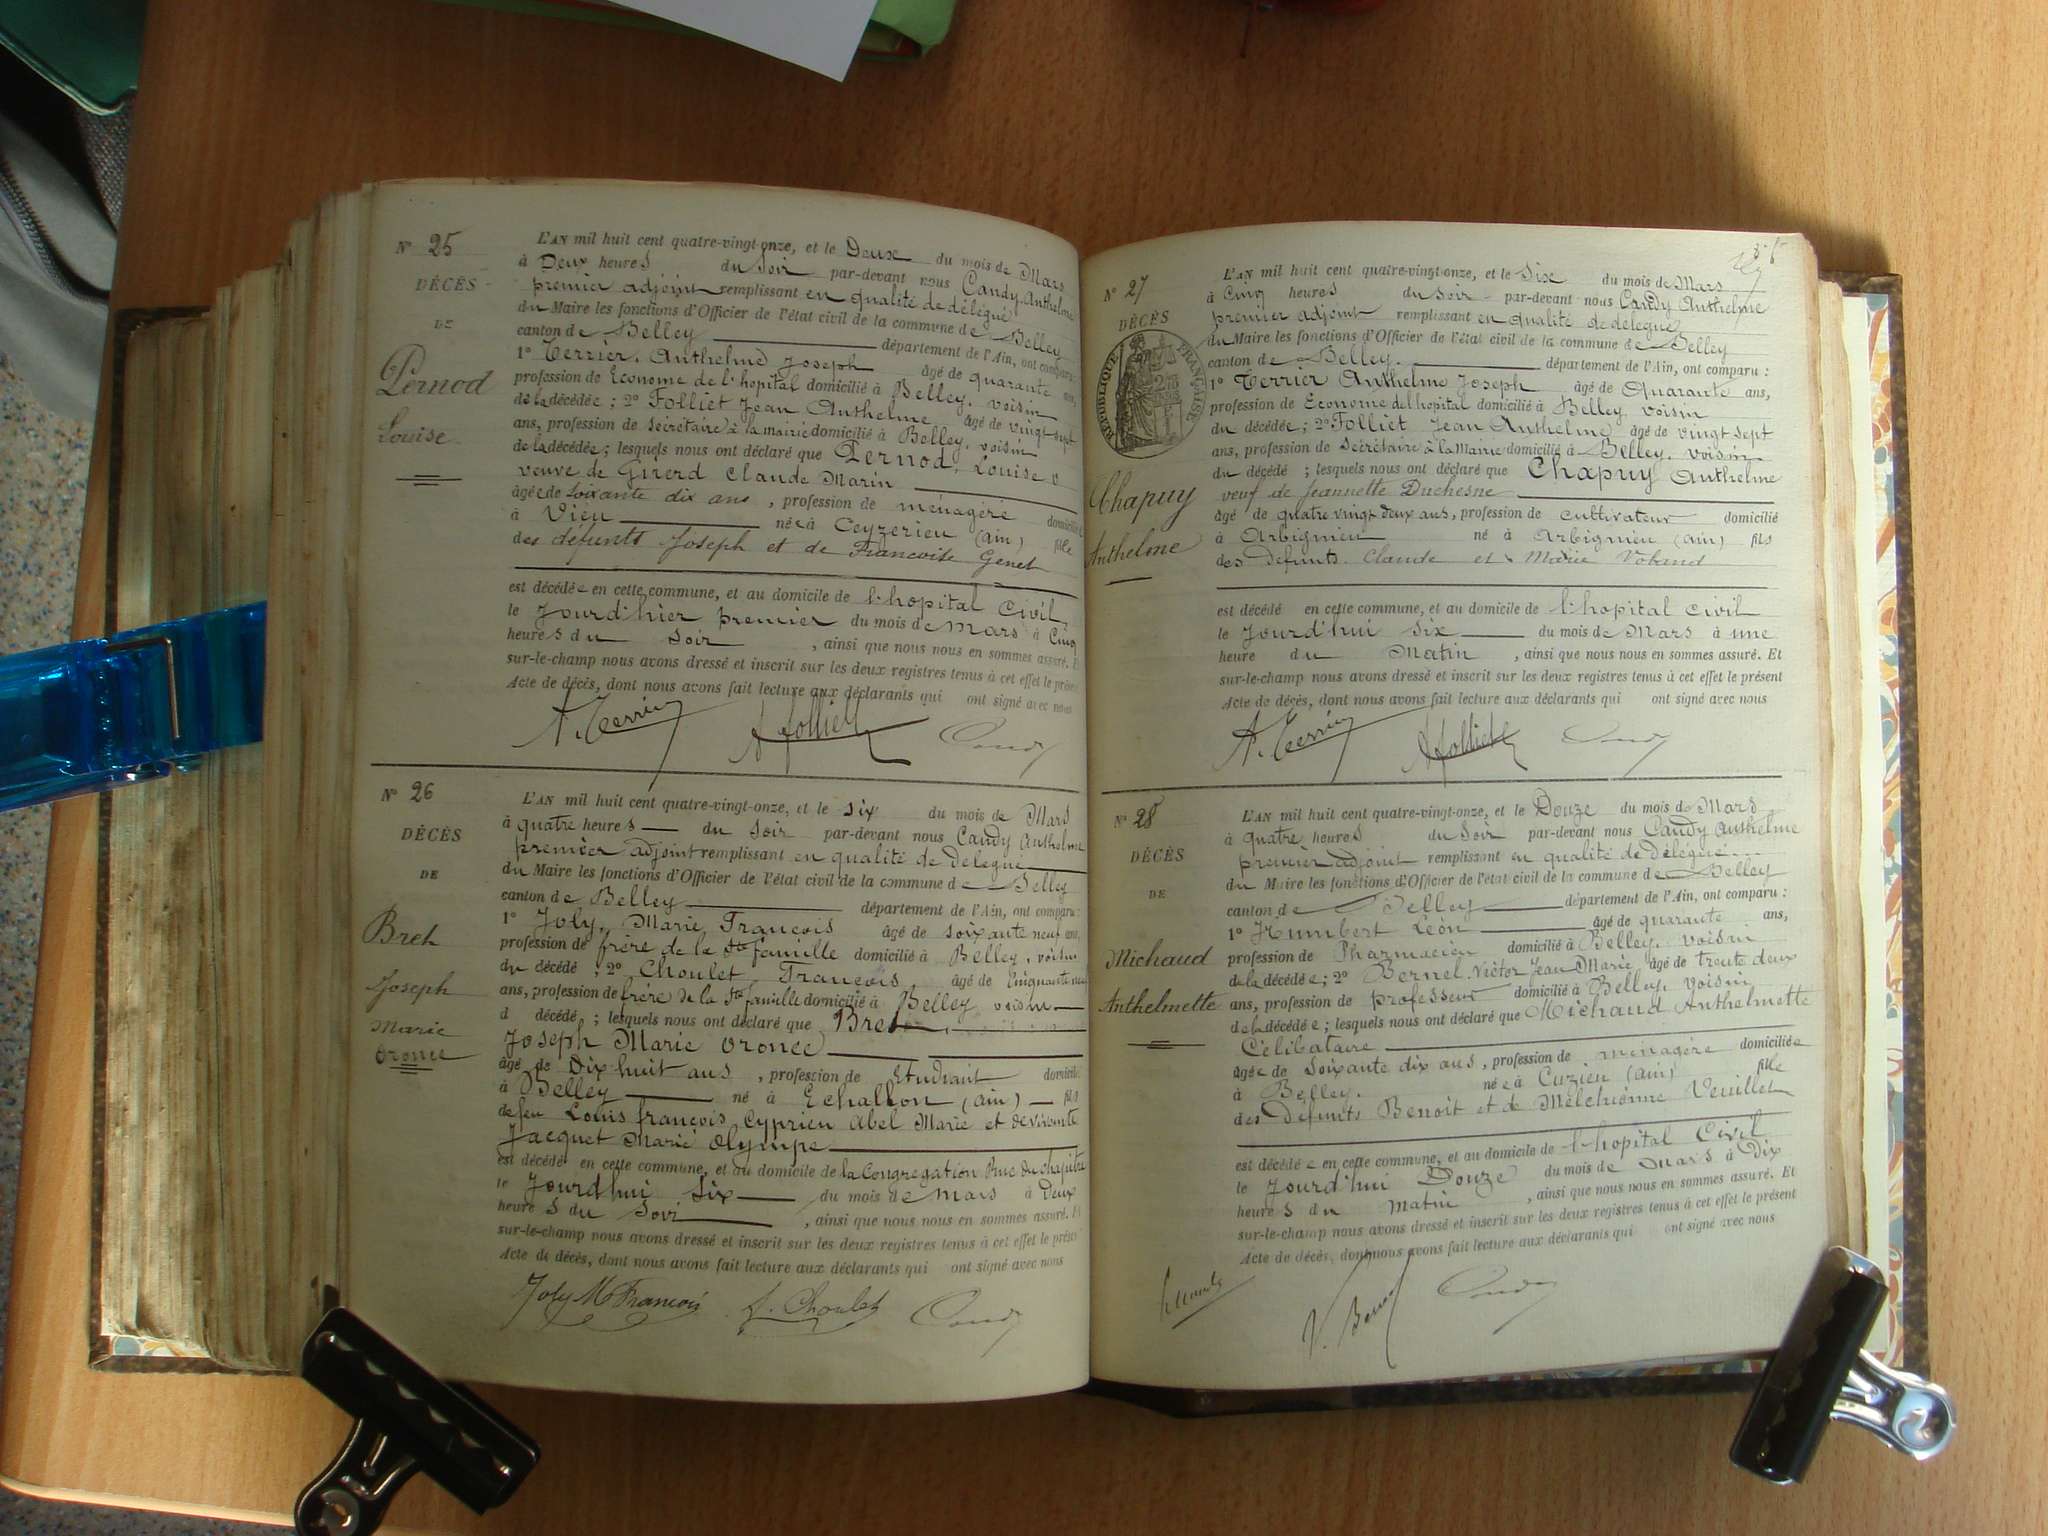 N° 25
DÉCÈS
DE
Pernod
Louise
L'AN mil huit cent quatre-vingt-onze, et le Deux du mois de Mars
à Deux heures du Soir par-devant nous Candy Anthelme
premier adjoint remplissant en qualité de délégué
du Maire les fonctions d'Officier de l'état civil de la commune de Belley
canton de Belley département de l'Ain, ont comparu :
1° Terrier, Anthelme Joseph âgé de quarante ans,
profession de Econome de l'hopital domicilié à Belley, voisin
de la décédée ; 2° Folliet Jean Anthelme âgé de vingt sept
ans, profession de secrétaire à la mairie domicilié à Belley, voisin
de la décédée ; lesquels nous ont déclaré que Pernod, Louise
veuve de Girerd Claude Marin
âgée de soixante dix ans, profession de ménagère domicilié
à Vieu née à Ceyzerieu (ain) fille
des défunts Joseph et de Francoise Genet
est décédée en cette commune, et au domicile de l'hopital Civil,
le Jourd'hier premier du mois de mars à Cinq
heures du soir, ainsi que nous nous en sommes assuré. Et
sur-le-champ nous avons dressé et inscrit sur les deux registres tenus à cet effet le présent
Acte de décès, dont nous avons fait lecture aux déclarants qui ont signé avec nous
A. Terrier A folliet Candy
N° 26
DÉCÈS
DE
Breh
Joseph
Marie
Oronce
L'AN mil huit cent quatre-vingt-onze, et le six du mois de Mars
à quatre heures du Soir par-devant nous Candy Anthelme
premier adjoint remplissant en qualité de Délégué
du Maire les fonctions d'Officier de l'état civil de la commune de Belley
canton de Belley département de l'Ain, ont comparu :
1° Joly, Marie Francois âgé de soixante neuf ans,
profession de frère de la Ste famille domicilié à Belley, voisin
du décédé ; 2° Choulet, Francois âgé de Cinquante
ans, profession de frère de la Ste famille domicilié à Belley voisin
d décédé ; lesquels nous ont déclaré que
Joseph Marie Oronce
âgé de Dix huit ans, profession de Etudiant domicilié
à Belley né à Echallon (ain) fils
de feu Louis françois Cyprien Abel Marie et de vivante
Jacquet Marie Olympe
est décédé en cette commune, et au domicile de la Congregation Rue du chapitre
le Jourd'hui Six du mois de mars à Deux
heures du Soir, ainsi que nous nous en sommes assuré. Et
sur-le-champ nous avons dressé et inscrit sur les deux registres tenus à cet effet le présent
Acte de décès, dont nous avons fait lecture aux déclarants qui ont signé avec nous
Joly M Francois f. Choulet Candy
N° 27
DÉCÈS
RÉPUBLIQUE FRANÇAISE
Chapuy
Anthelme
L'AN mil huit cent quatre-vingt-onze, et le Six du mois de Mars
à Cinq heures du Soir par-devant nous Candy Anthelme
premier adjoint remplissant en qualité de délégué
du Maire les fonctions d'Officier de l'état civil de la commune de Belley
canton de Belley. département de l'Ain, ont comparu :
1° Terrier Anthelme Joseph âgé de Quarante ans,
profession de Econome del hopital domicilié à Belley voisin
du décédée ; 2° Folliet Jean Anthelme âgé de vingt sept
ans, profession de Secrétaire à la Mairie domicilié à Belley. voisin
du décédé ; lesquels nous ont déclaré que Chapuy Anthelme
veuf de Jeannette Duchesne
âgé de quatre vingt deux ans, profession de cultivateur domicilié
à Arbignieu né à Arbignieu (ain) fils
des Défunts Claude et Marie
est décédé en cette commune, et au domicile de l'hopital civil
le Jourd'hui Six du mois de Mars à une
heure du Matin, ainsi que nous nous en sommes assuré. Et
sur-le-champ nous avons dressé et inscrit sur les deux registres tenus à cet effet le présent
Acte de décès, dont nous avons fait lecture aux déclarants qui ont signé avec nous
A. Terrier A folliet Candy
N° 28
DÉCÈS
DE
Michaud
Anthelmette
L'AN mil huit cent quatre-vingt-onze, et le Douze du mois de Mars
à quatre heures du Soir par-devant nous Candy Anthelme
premier adjoint remplissant en qualité de Délégué
du Maire les fonctions d'Officier de l'état civil de la commune de Belley
canton de Belley département de l'Ain, ont comparu :
1° Humbert Léon âgé de quarante ans,
profession de Pharmacien domicilié à Belley, voisin
de la décédée ; 2° Bernel Victor Jean Marie âgé de trente deux
ans, profession de professeur domicilié à Belley, voisin
de la décédée ; lesquels nous ont déclaré que Michaud Anthelmette
Célibataire
âgée de Soixante dix ans, profession de ménagère domiciliée
à Belley. née à Cuzieu (ain) fille
des Défunts Benoit et de Melchionne Veuillet
est décédée en cette commune, et au domicile de l'hopital Civil
le Jourd'hui Douze du mois de Mars à Dix
heures du matin, ainsi que nous nous en sommes assuré. Et
sur-le-champ nous avons dressé et inscrit sur les deux registres tenus à cet effet le présent
Acte de décès, dont nous avons fait lecture aux déclarants qui ont signé avec nous
V. Candy